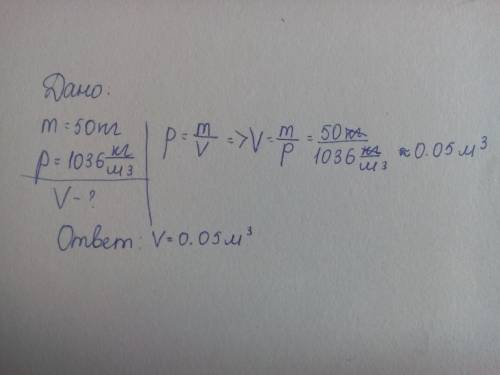 Дано:
m = 50кг
ρ = 1036 кг/м³
V - ?
ρ = m/V => V = m/ρ = 50кг / 1036 кг/м³ ≈ 0.05м³
Ответ: V = 0.05м³